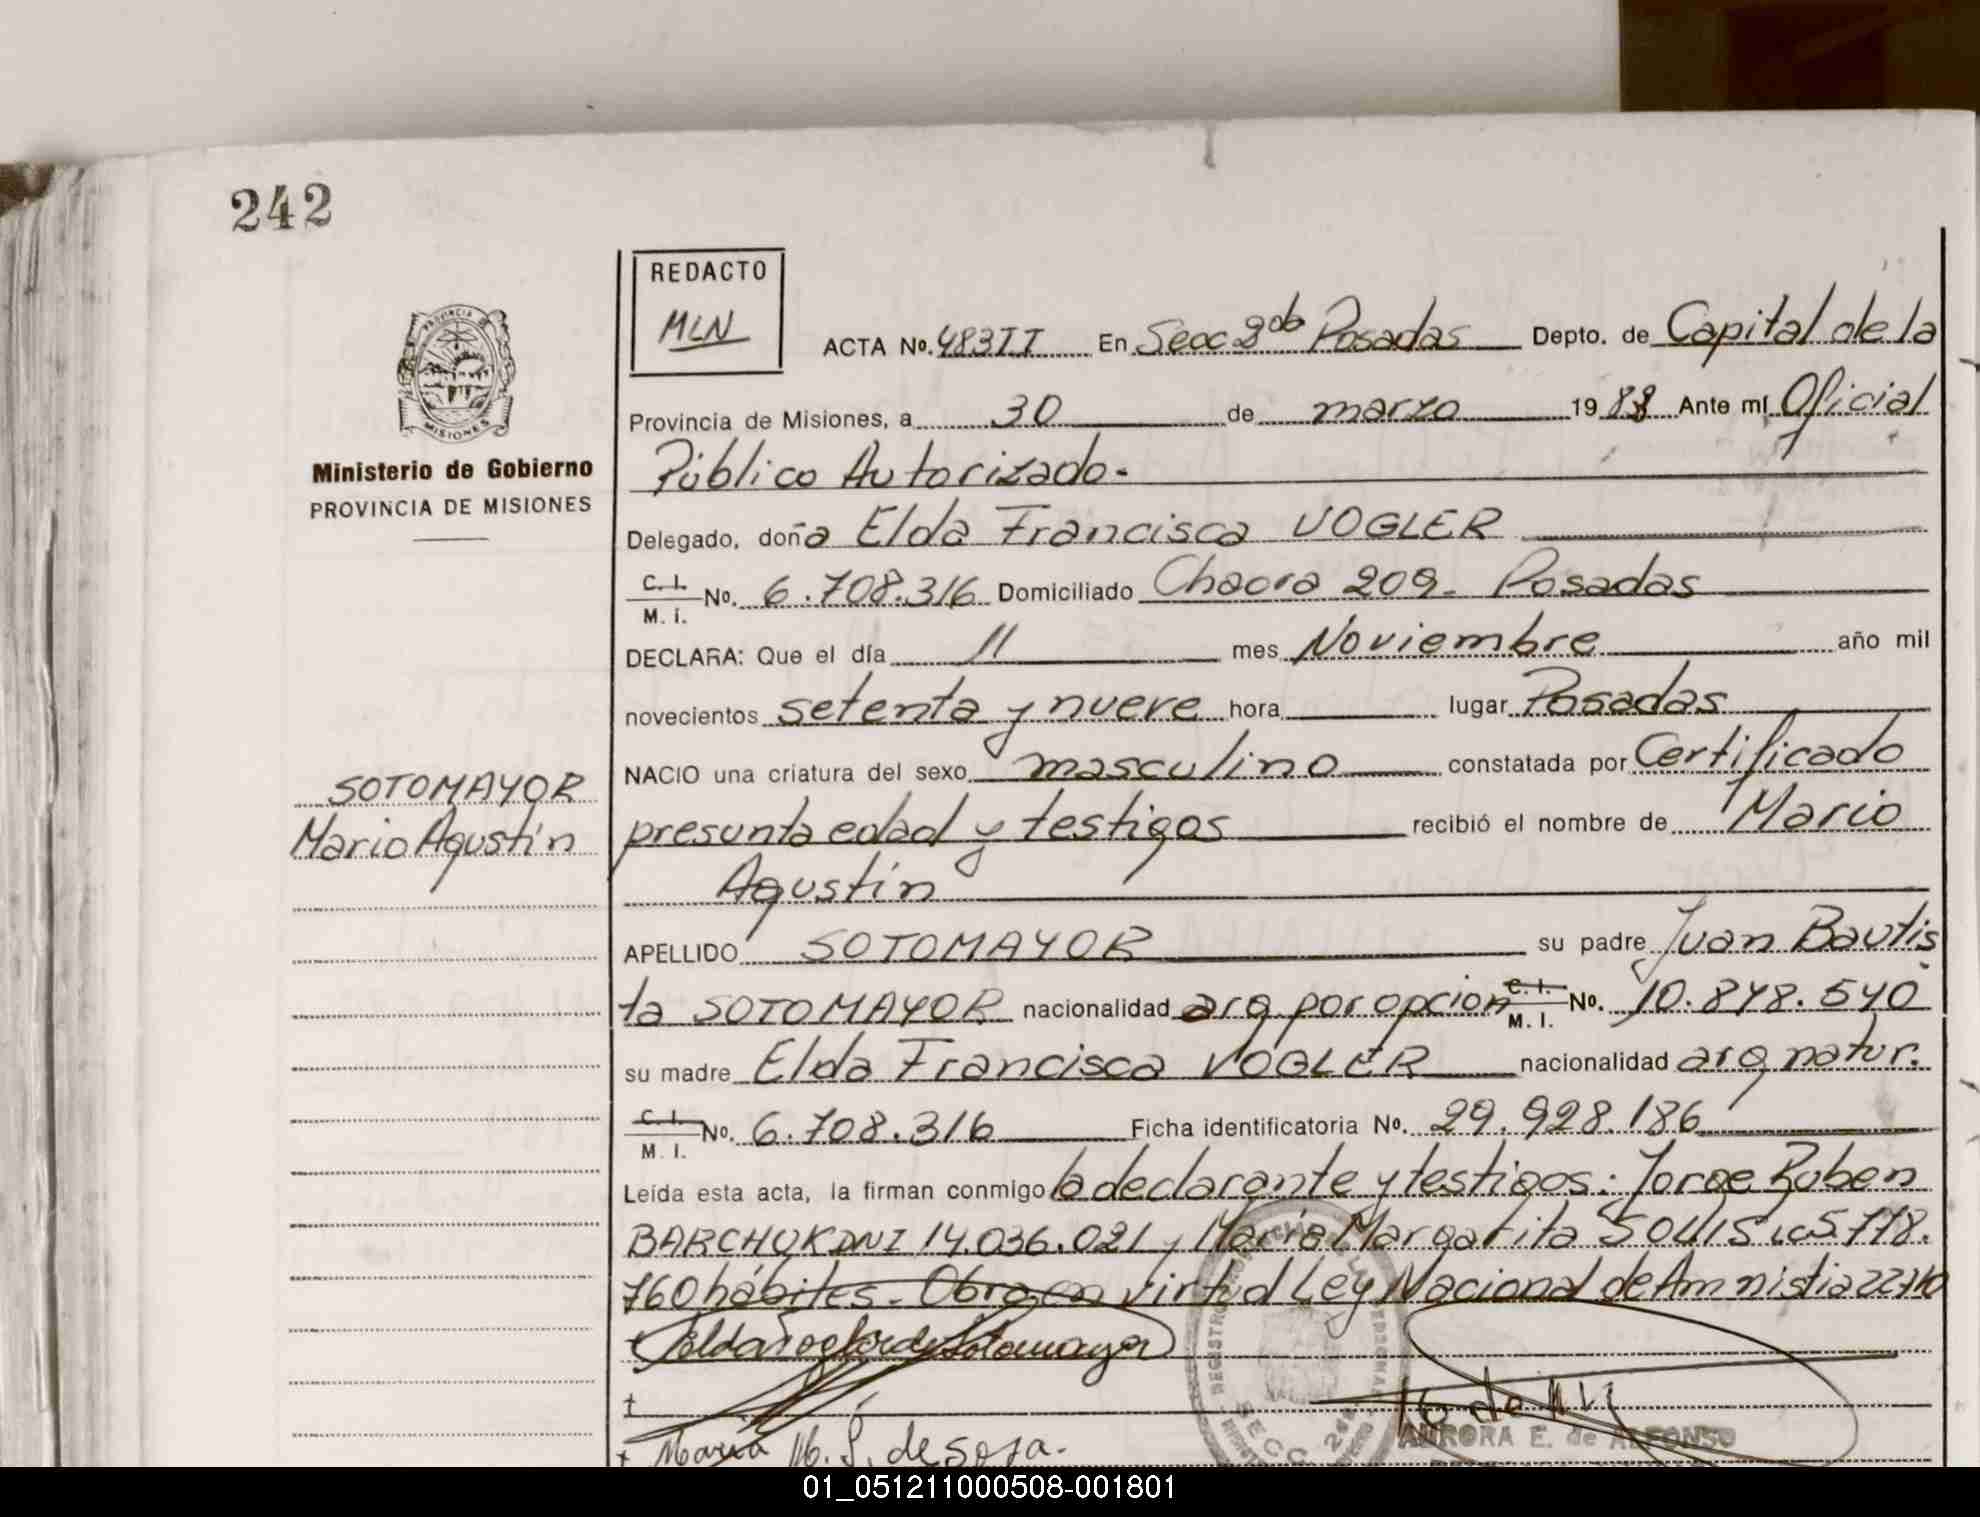 242
REDACTO
MLN
ACTA No. 483 II En Secc 2da Posadas Depto. de Capital de la
Provincia de Misiones, a 30 de marzo 1983 Ante mí Oficial
Público Autorizado.
PROVINCIA
MISIONES
Ministerio de Gobierno
PROVINCIA DE MISIONES
Delegado, doña Elda Francisca VOGLER
C. I.
M. I. No. 6.708.316 Domiciliado Chacra 209. Posadas
DECLARA: Que el día 11 mes Noviembre año mil
novecientos setenta y nueve hora lugar Posadas
NACIO una criatura del sexo masculino constatada por Certificado
SOTOMAYOR
Mario Agustín
presunta edad y testigos recibió el nombre de Mario
Agustín
APELLIDO SOTOMAYOR su padre Juan Bautis
ta SOTOMAYOR nacionalidad arg por opcion C. I. M. I. No. 10.878.540
su madre Elda Francisca VOGLER nacionalidad arg natur.
C. I.
M. I. No. 6.708.316 Ficha identificatoria No. 29.928.186
Leída esta acta, la firman conmigo la declarante y testigos: Jorge Ruben
BARCHUK DNI 14.036.021 y María Margarita SOLIS LC 5.778.
760 hábiles. Obra en virtud Ley Nacional de Amnistia
Elda Vogler de Sotomayor
María M. S. de Sosa.
SECC. 2da
AURORA E. de ALFONSO
01_051211000508-001801